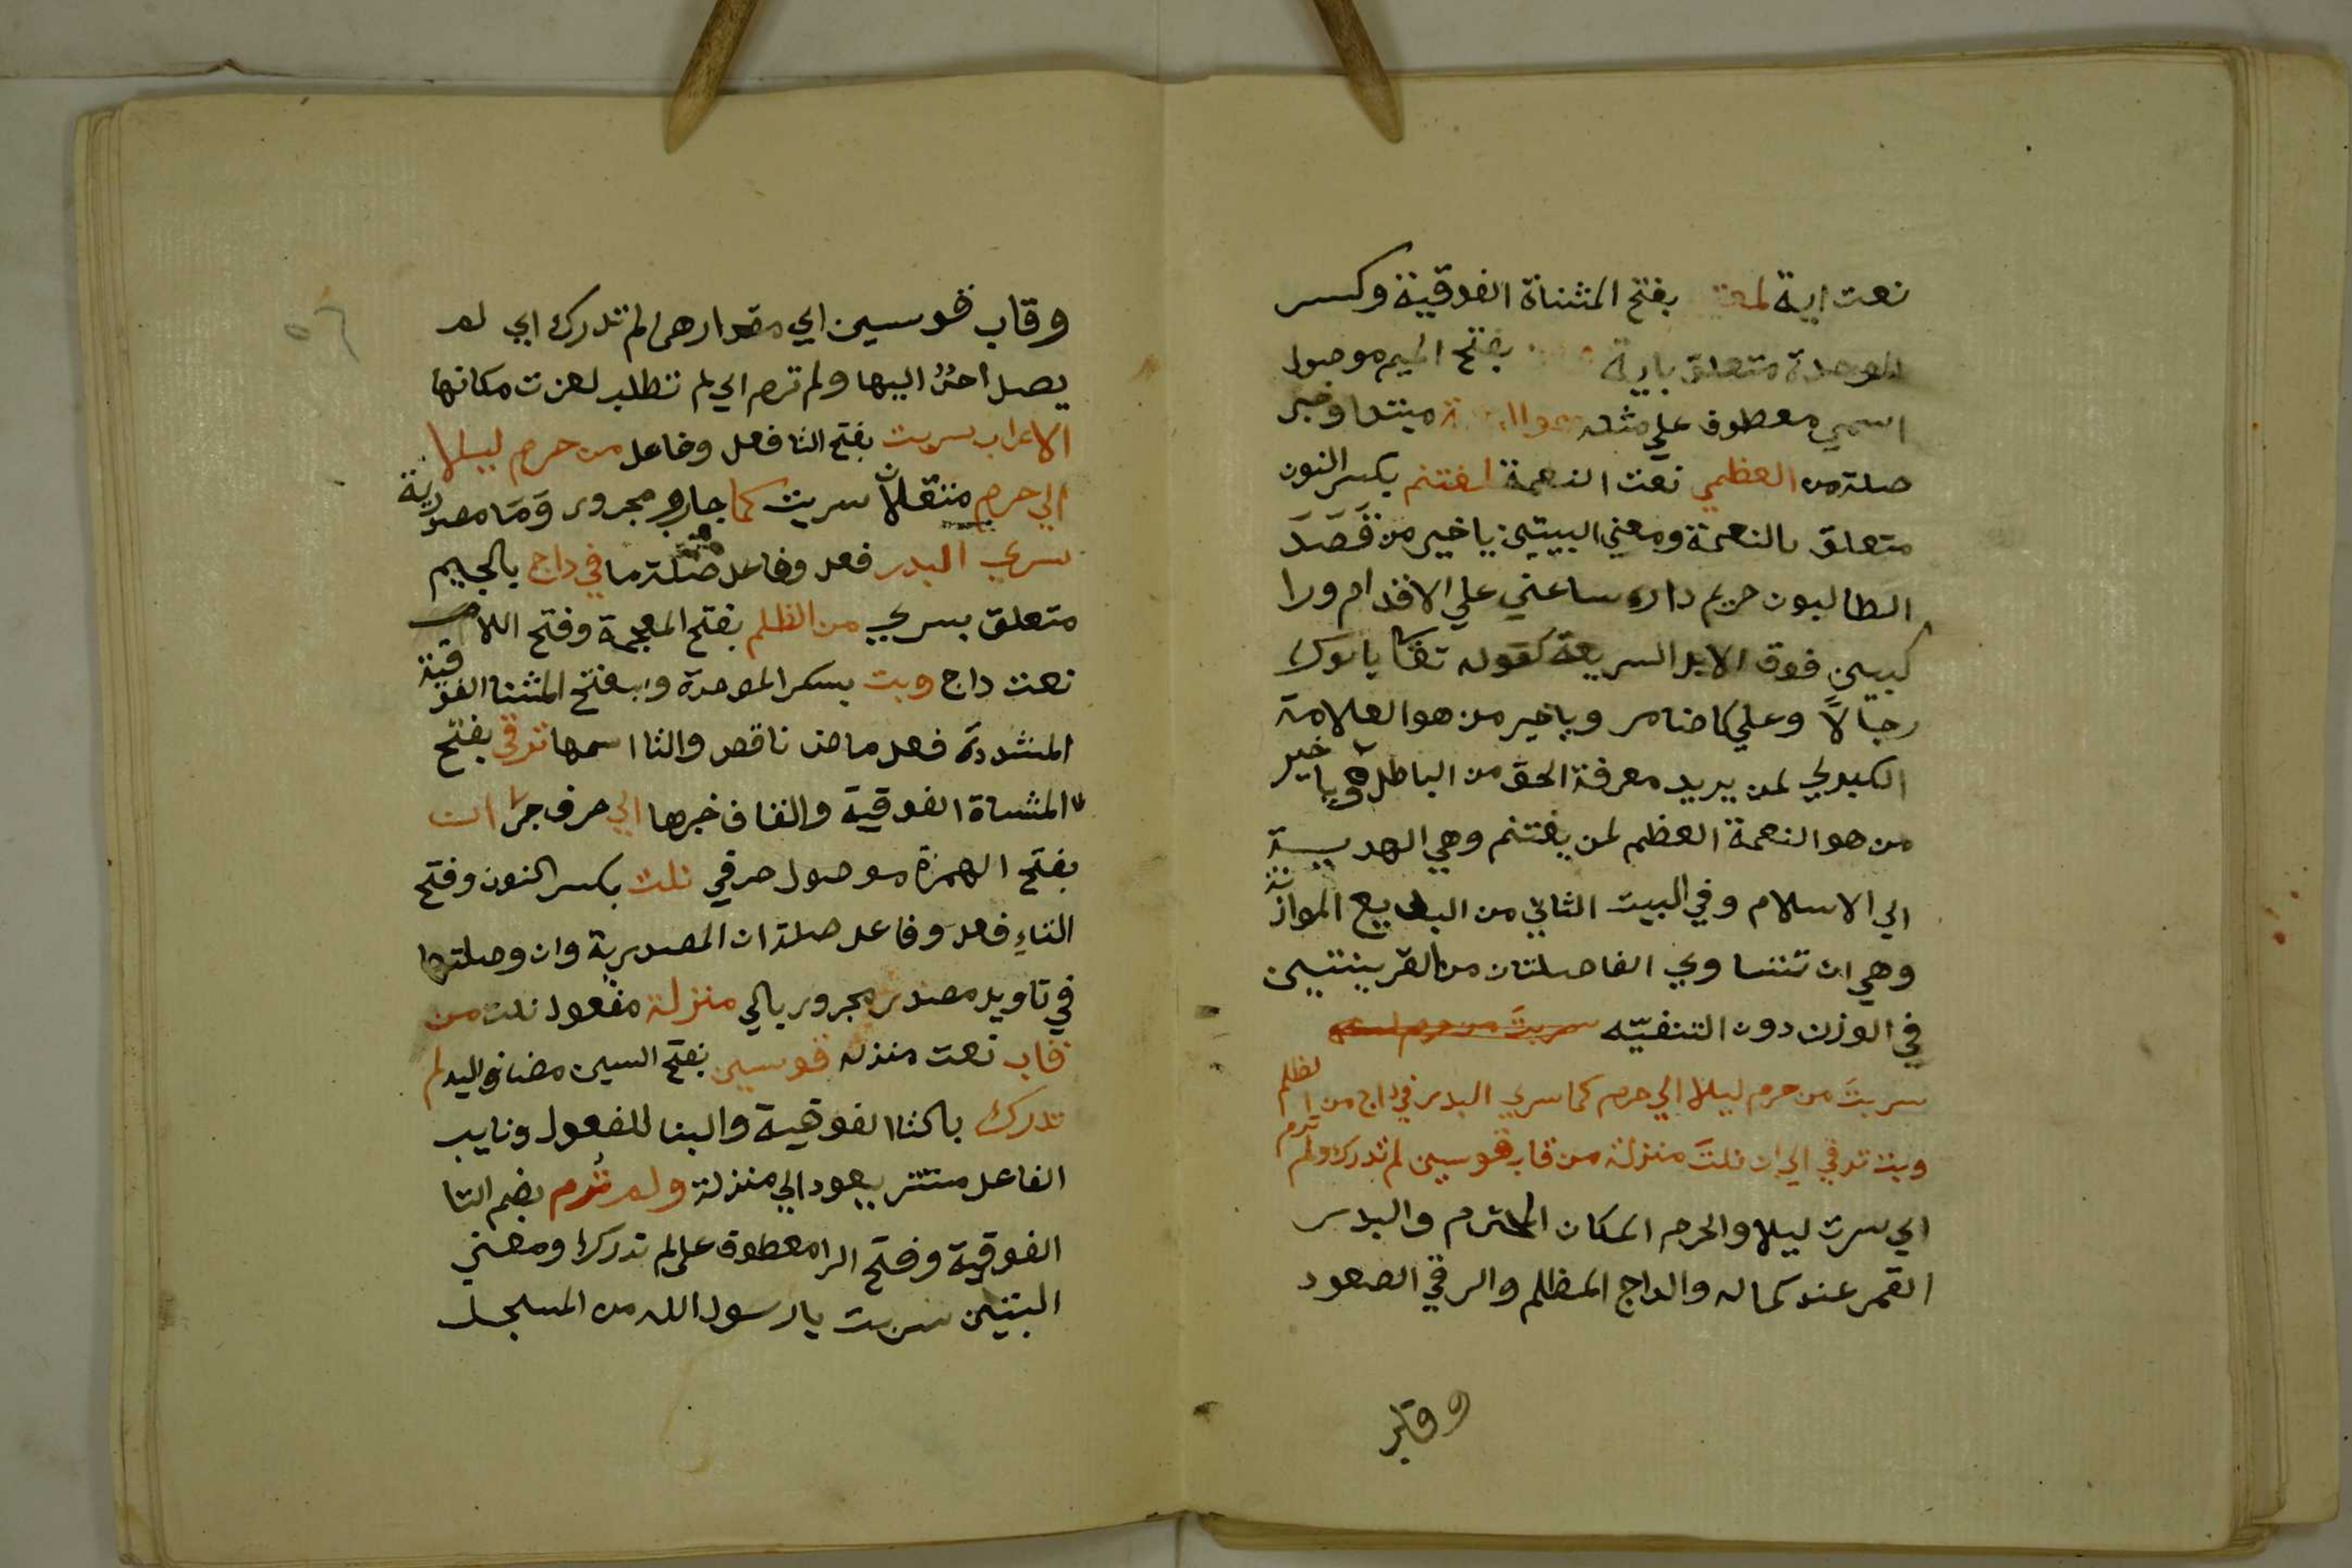 نعت اية لمعتبر بفتح المثناة الفوقية وكسر
الموحدة متعلق باية بفتح الميم موصول
اسمي معطوف علي مثله هو مبتدا وخبر
صلة من العظمي نعت النعمة لمغتنم بكسر النون
متعلق بالنعمة ومعني البيتين يا خير من قَصَدَ
الطالبون حريم داره ساعني علي الاقدام ورا
كبين فوق الابل السريعة كقوله تعا ياتوك
رجالاً وعلي كل ضامر وياخير من هو العلامة
الكبري لمن يريد معرفة الحق من الباطل وياخير
من هو النعمة العظم لمن يغتنم وهي الهدية
الي الاسلام وفي البيت الثاني من البديع الموازنة
وهي ان تتساوي الفاصلتان من القرينتين
في الوزن دون التقفيّه سريتَ من حرم
سريتَ من حرم ليلا الي حرم كما سري البدر في داج من الظلم
وبت ترقي الي ان نلتَ منزلة من قاب قوسين لم تدرك ولم ترم
اي سرت ليلا والحرم المكان المحترم والبدر
القمر عند كماله والداج المظلم والرقي الصعود
وقاب
٥٦
وقاب قوسين اي مقدارهما لم تدرك اي لم
يصل احدٌ اليها ولم ترم اي لم تطلب لعزت مكانها
الاعراب سريت بفتح التا فعل وفاعل من حرم ليلا
الي حرم متعلقان سريت كما جار ومجرور وَمَا مصدرية
سري البدر فعل وفاعل صلة ما في داج بالجيم
متعلق بسري من الظلم بفتح المعجمة وفتح اللام
نعت داج وبت بسكر الموحدة وبفتح المثنا الفوقية
المشددة فعل ماض ناقص والتا اسمها ترقي بفتح
المثناة الفوقية والقاف خبرها الي حرف جر ان
بفتح الهمزة موصول حرفي نلت بكسر النون وفتح
التاءِ فعل وفاعل صلة ان المصدرية وان وصلتها
في تاويل مصدر مجرور بالي منزلة مفعول نلت من
قاب نعت منزله قوسين بفتح السين مضاف اليه لم
تدرك بالتا الفوقية والبنا للمفعول ونايب
الفاعل مستتر يعود الي منزلة ولم تُرم بضم التا
الفوقية وفتح الرا معطوف علي لم تدرك ومعني
البتين سريت يا رسول الله من المسجد